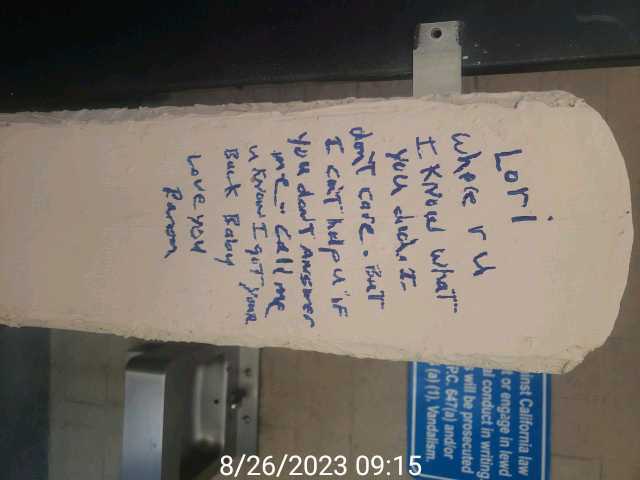 Lori
Where r u
I Know what
you did. I
don't care. But
I can't help u if
you don't Answer
me - Call me
u know I got your
Back Baby
Love you
inst California law
t or engage in lewd
l conduct in writing
s will be prosecuted
P.C. 647(a) and/or
(a) (1), Vandalism.
8/26/2023 09:15